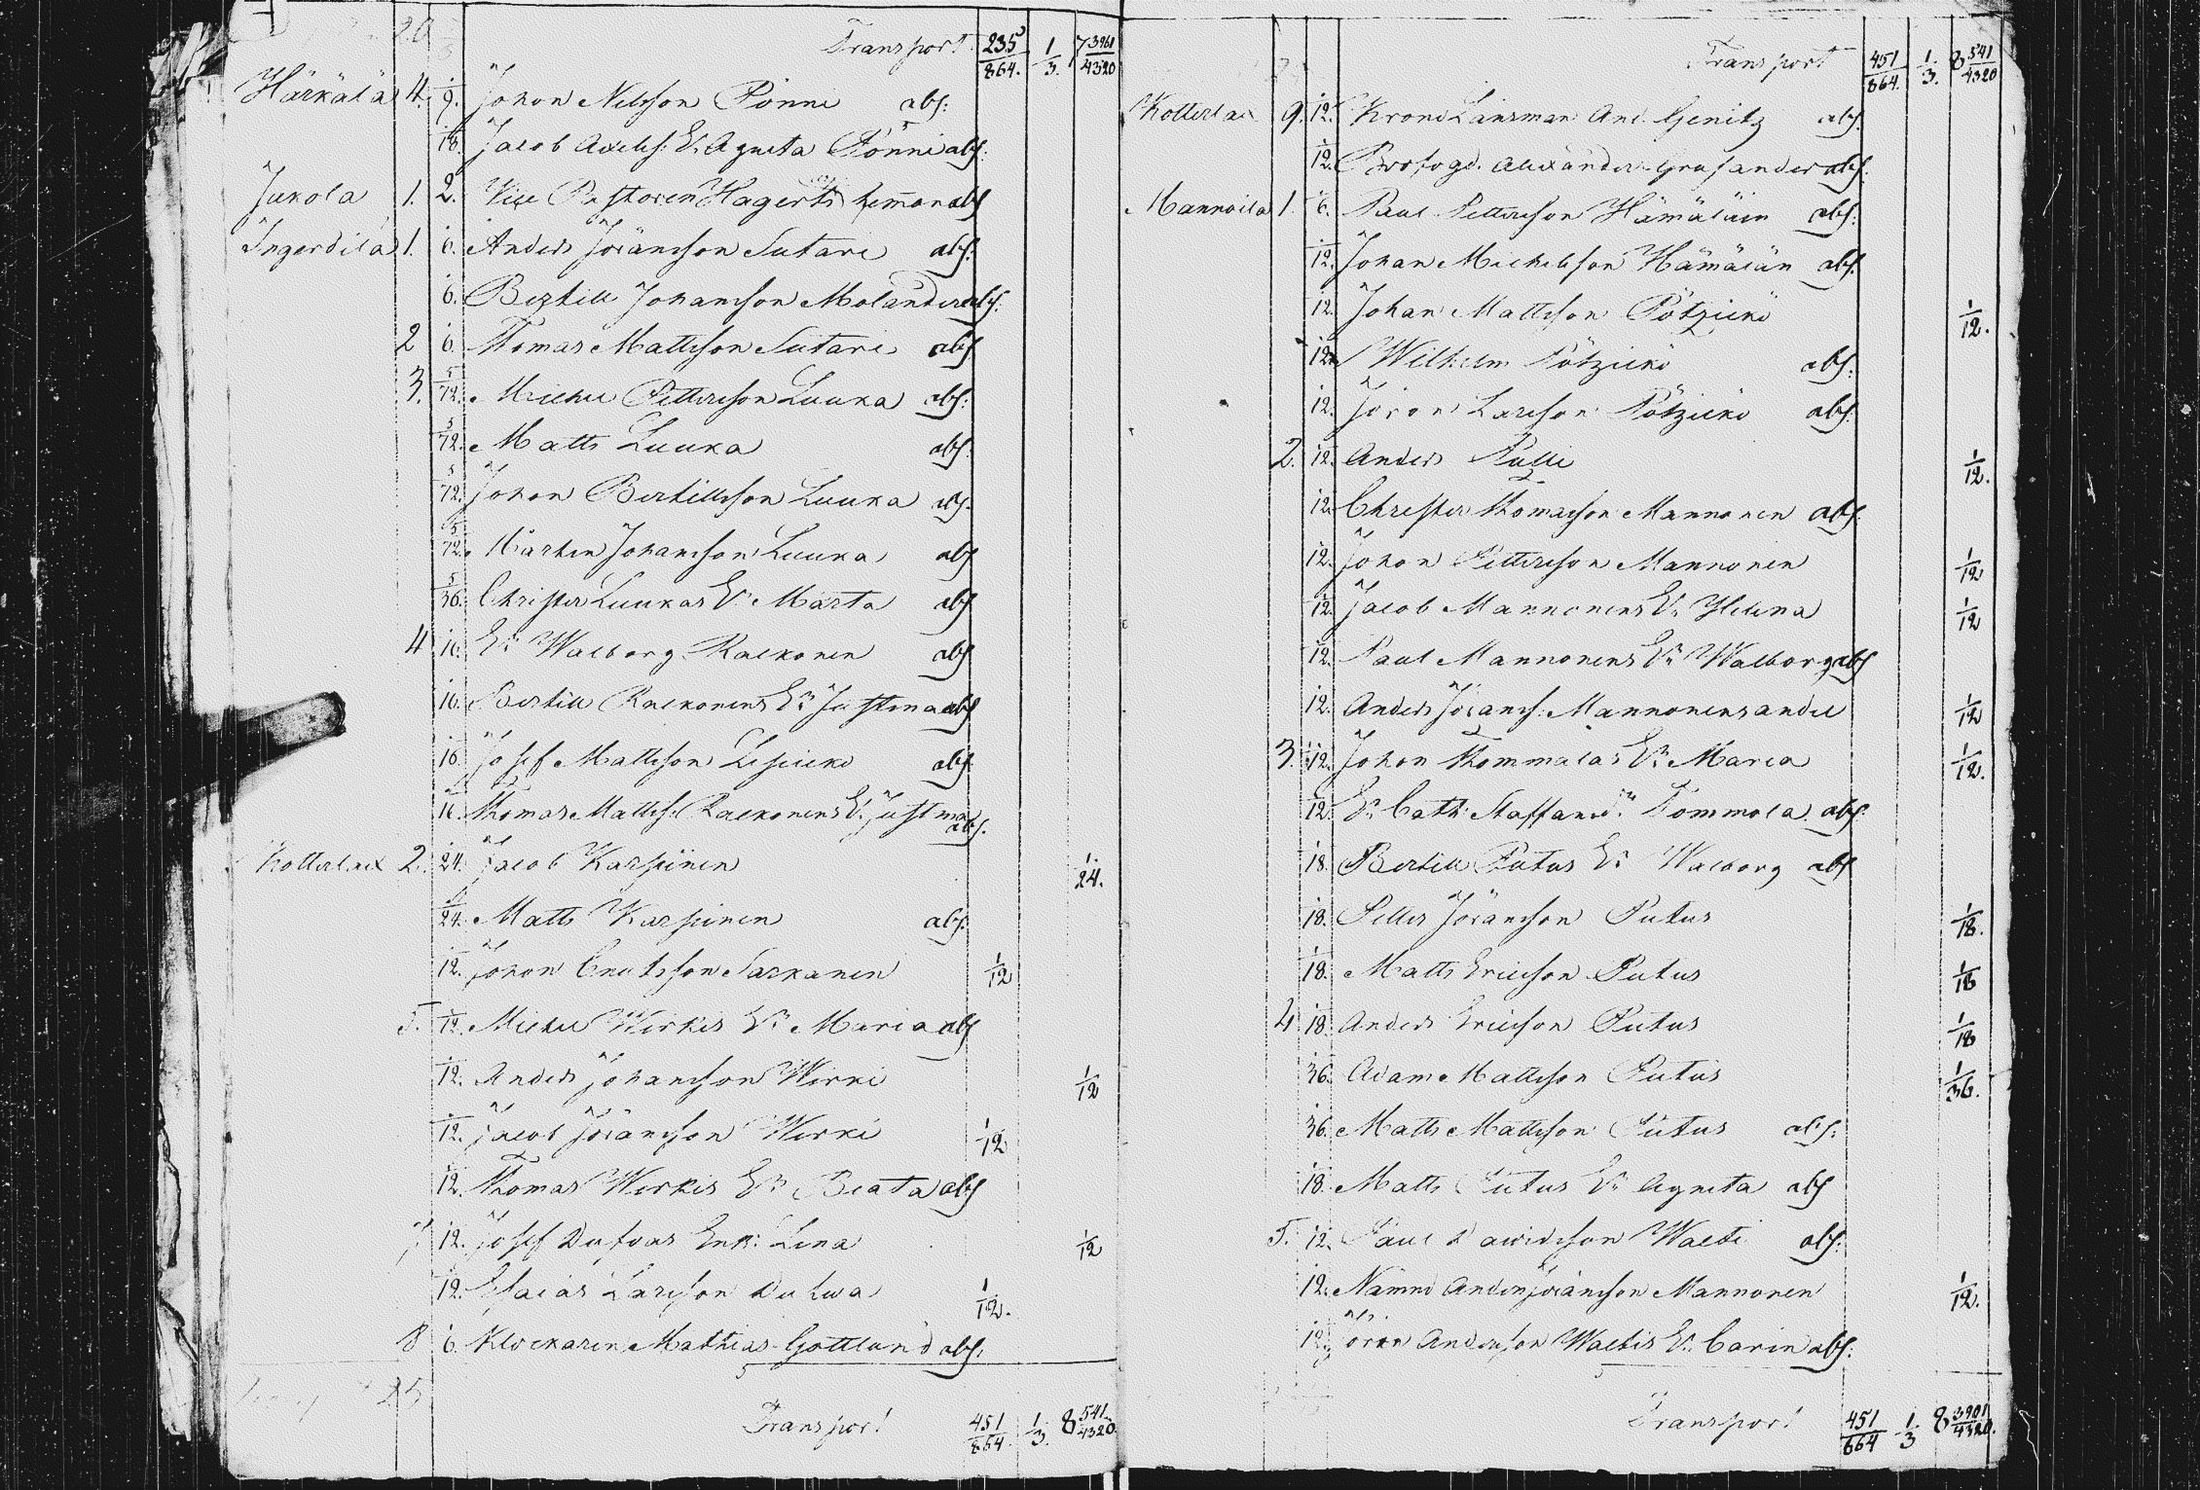 20
Transport 235/864. 1/3. 7 3961/4320
Härkälä 4. 1/9. Johan Nilsson Pönni abs:
1/18. Jacob Axels: E. Agneta Pönni abs:
Jukola 1. 2. Vice Pastoren Hagerts hemman abs
Ingerdila 1. 1/6. Anders Jöransson Sutari abs:
1/6. Bertill Johansson Molander abs:
2 1/6. Thomas Mattsson Sutari abs
3. 5/72. Michel Pettersson Luuka abs:
5/72. Matts Luuka abs:
5/72. Johan Bertillsson Luuka abs.
5/72. Mårten Johansson Luuka abs
5/36. Christer Luukas E: Marta abs
4 1/16. E: Walborg Ralkonen abs
1/16. Bertill Ralkonens E: Justina abs
1/16. Josef Mattsson abs
1/16. Thomas Matts: Ralkonens E: Justina abs:
Kotterlax 2. 1/24. Jacob Karpinen 1/24.
1/24. Matts Karpinen abs:
1/12. Johan Sarkanen 1/12
5. 1/12. Michel Wirkis E: Maria abs
1/12. Anders Johansson Wirki 1/12
1/12. Jacob Jöransson Wirki 1/12
1/12. Thomas Wirkis E: Beata abs
7 1/12. Josef Enk: Lena 1/12
1/12. Esaias Larsson 1/12.
8 1/6. Klockaren Mathias Gottlund abs:
25
Transport 451/864. 1/3. 8 541/4320.
Transport 451/864. 1/3. 8 541/4320
Kotterlax 9. 1/12. Krono Länsman And. Genitz abs.
1/12. Alexander abs:
Mannoila 1. 1/6. Paul Pettersson Hämäläin abs:
1/12. Johan Michelsson Hämäläin abs.
1/12. Johan Mattsson Pötzicko 1/12.
1/12. Wilhelm Pötzicko abs:
1/12. Jöran Larsson Pötzicko abs:
2. 1/12. Anders Pulli 1/12.
1/12. Christer Thomasson Mannonen abs:
1/12. Johan Pettersson Mannonen 1/12
1/12. Jacob Mannonens E: Helena 1/12
1/12. Paul Mannonens E: Walborg abs
1/12. Anders Jörans: Mannonens andel 1/12
3. 1/12. Johan Thommalas E: Maria 1/12.
1/12. E: Cath: Staffansd: Tommola abs:
1/18. Bertill Putus E: Walborg abs
1/18. Petter Jöransson Putus 1/18.
1/18. Matts Ericsson Putus 1/18
4 1/18. Anders Ericsson Putus 1/18
1/36. Adam Mattsson Putus 1/36.
1/36. Matts Mattsson Putus abs:
1/18. Matts Putus E: Agneta abs
5. 1/12. Paul Davidsson Waldi abs:
1/12. Nämnd Anders Jöransson Mannonen 1/12.
1/12. Jöran Andersson E: Carin abs:
Transport 451/864 1/3 8 3901/4320.